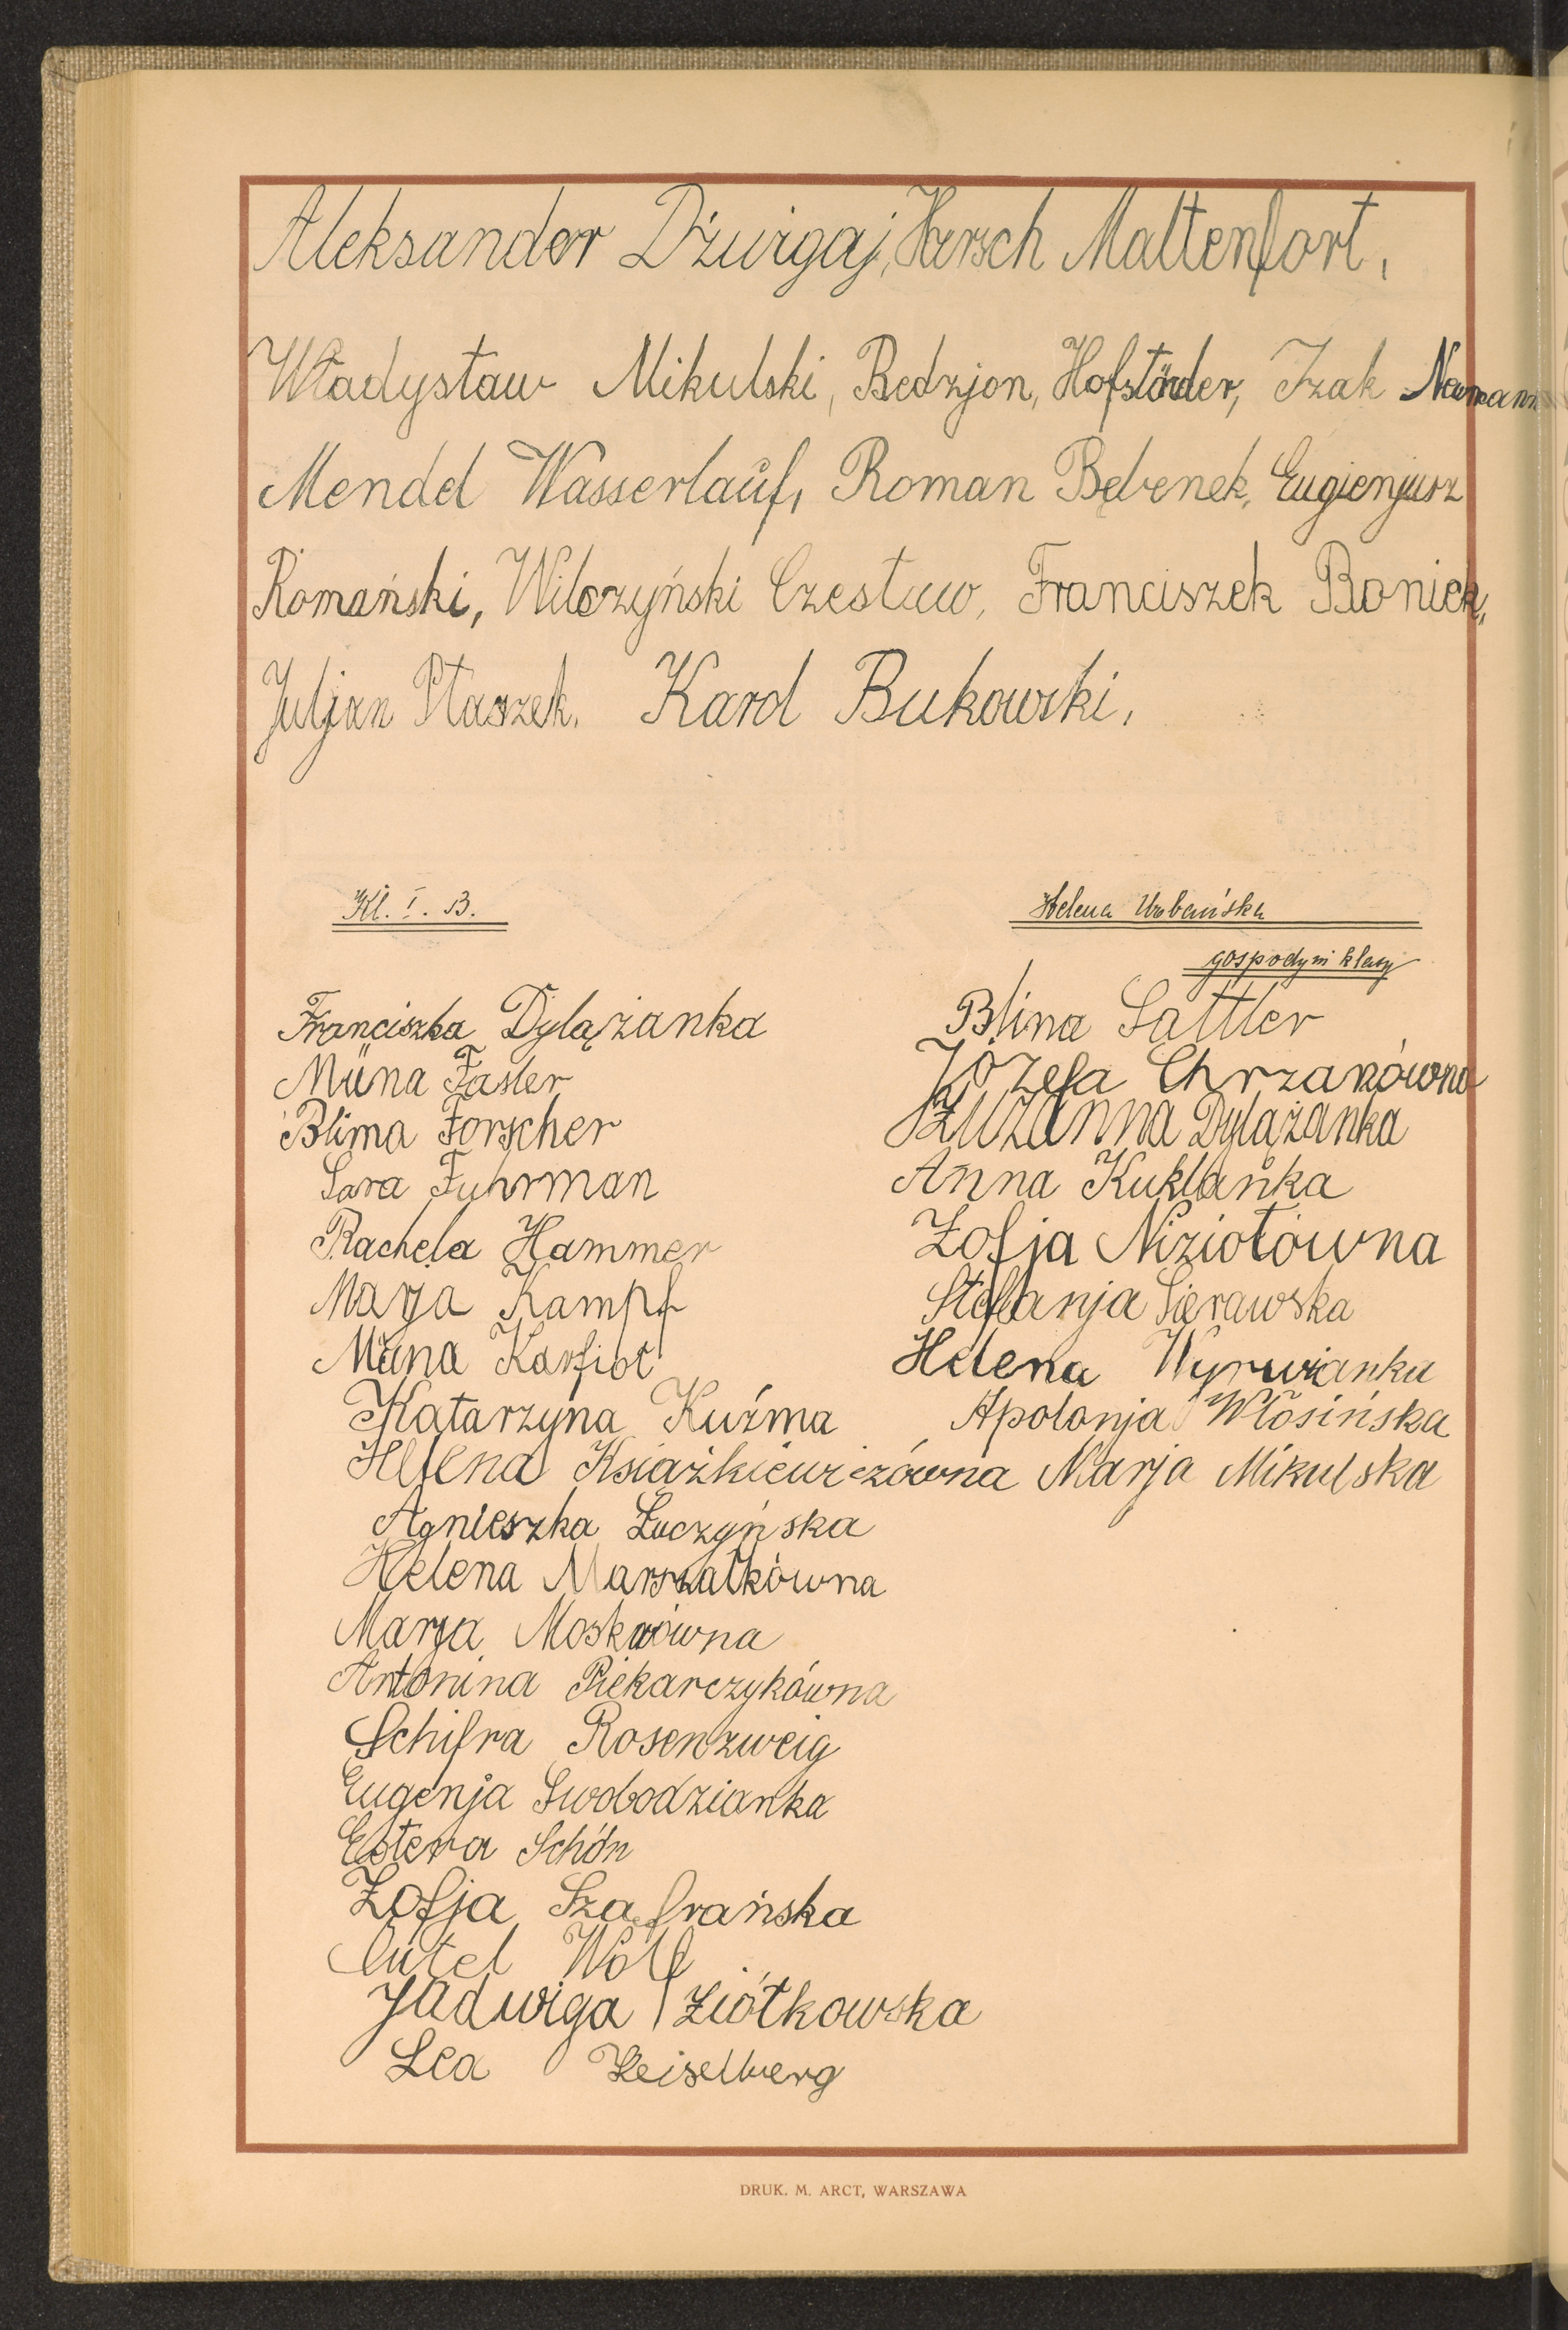 Aleksander Dźwigaj, Hersch Maltenfort,
Władysław Mikulski, Bedzjon, Hofstöder, Izak Neumann
Mendel Wasserlauf, Roman Bębenek, Eugienjusz
Romański, Wilczyński Czesław, Franciszek Boniek,
Juljan Ptaszek, Karol Bukowski,
Kl. I. B.
Helena Urbańska
gospodyni klasy
Franciszka Dylążanka
Müna Fasler
Blima Forscher
Sara Fuhrman
Rachela Hammer
Marja Kampf
Müna Karfiol
Katarzyna Kuźma
Helena Książkiewiczówna
Agnieszka Łuczyńska
Helena Marszałkówna
Marja Moskwówna
Antonina Piekarczykówna
Schifra Rosenzweig
Eugenja Swobodzianka
Estera Schön
Zofja Szafrańska
Gütel Wolf
Jadwiga Ziółkowska
Lea Zeiselberg
Blina Sattler
Józefa Chrzanówna
Zuzanna Dylążanka
Anna Kuklanka
Zofja Niziołówna
Stefanja Sierawska
Helena Wyrwianka
Apolonja Włosińska
Marja Mikulska
DRUK. M. ARCT, WARSZAWA